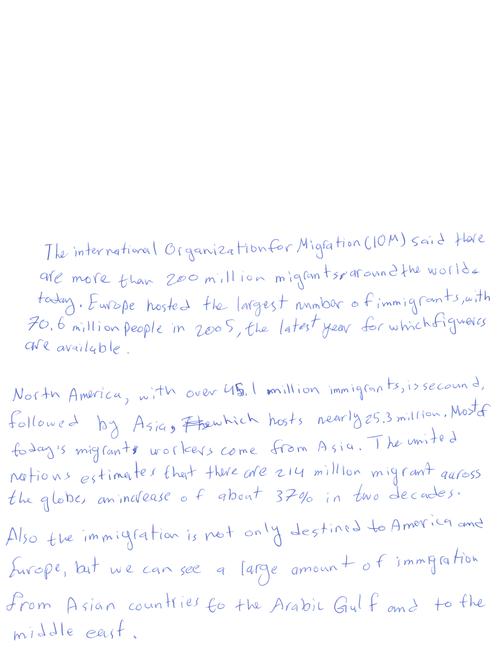 The international Organization for Migration (IOM) said there
are more than 200 million migrants around the world
today. Europe hosted the largest number of immigrants, with
70.6 million people in 2005, the latest year for which figuers
are available.
North America, with over 45.1 million immigrants, is secound,
followed by Asia, which hosts nearly 25.3 million. Most of
today's migrants workers come from Asia. The united
nations estimates that there are 214 million migrant across
the globe, an increase of about 37% in two decades.
Also the immigration is not only destined to America and
Europe, but we can see a large amount of immgration
from Asian countries to the Arabic Gulf and to the
middle east.